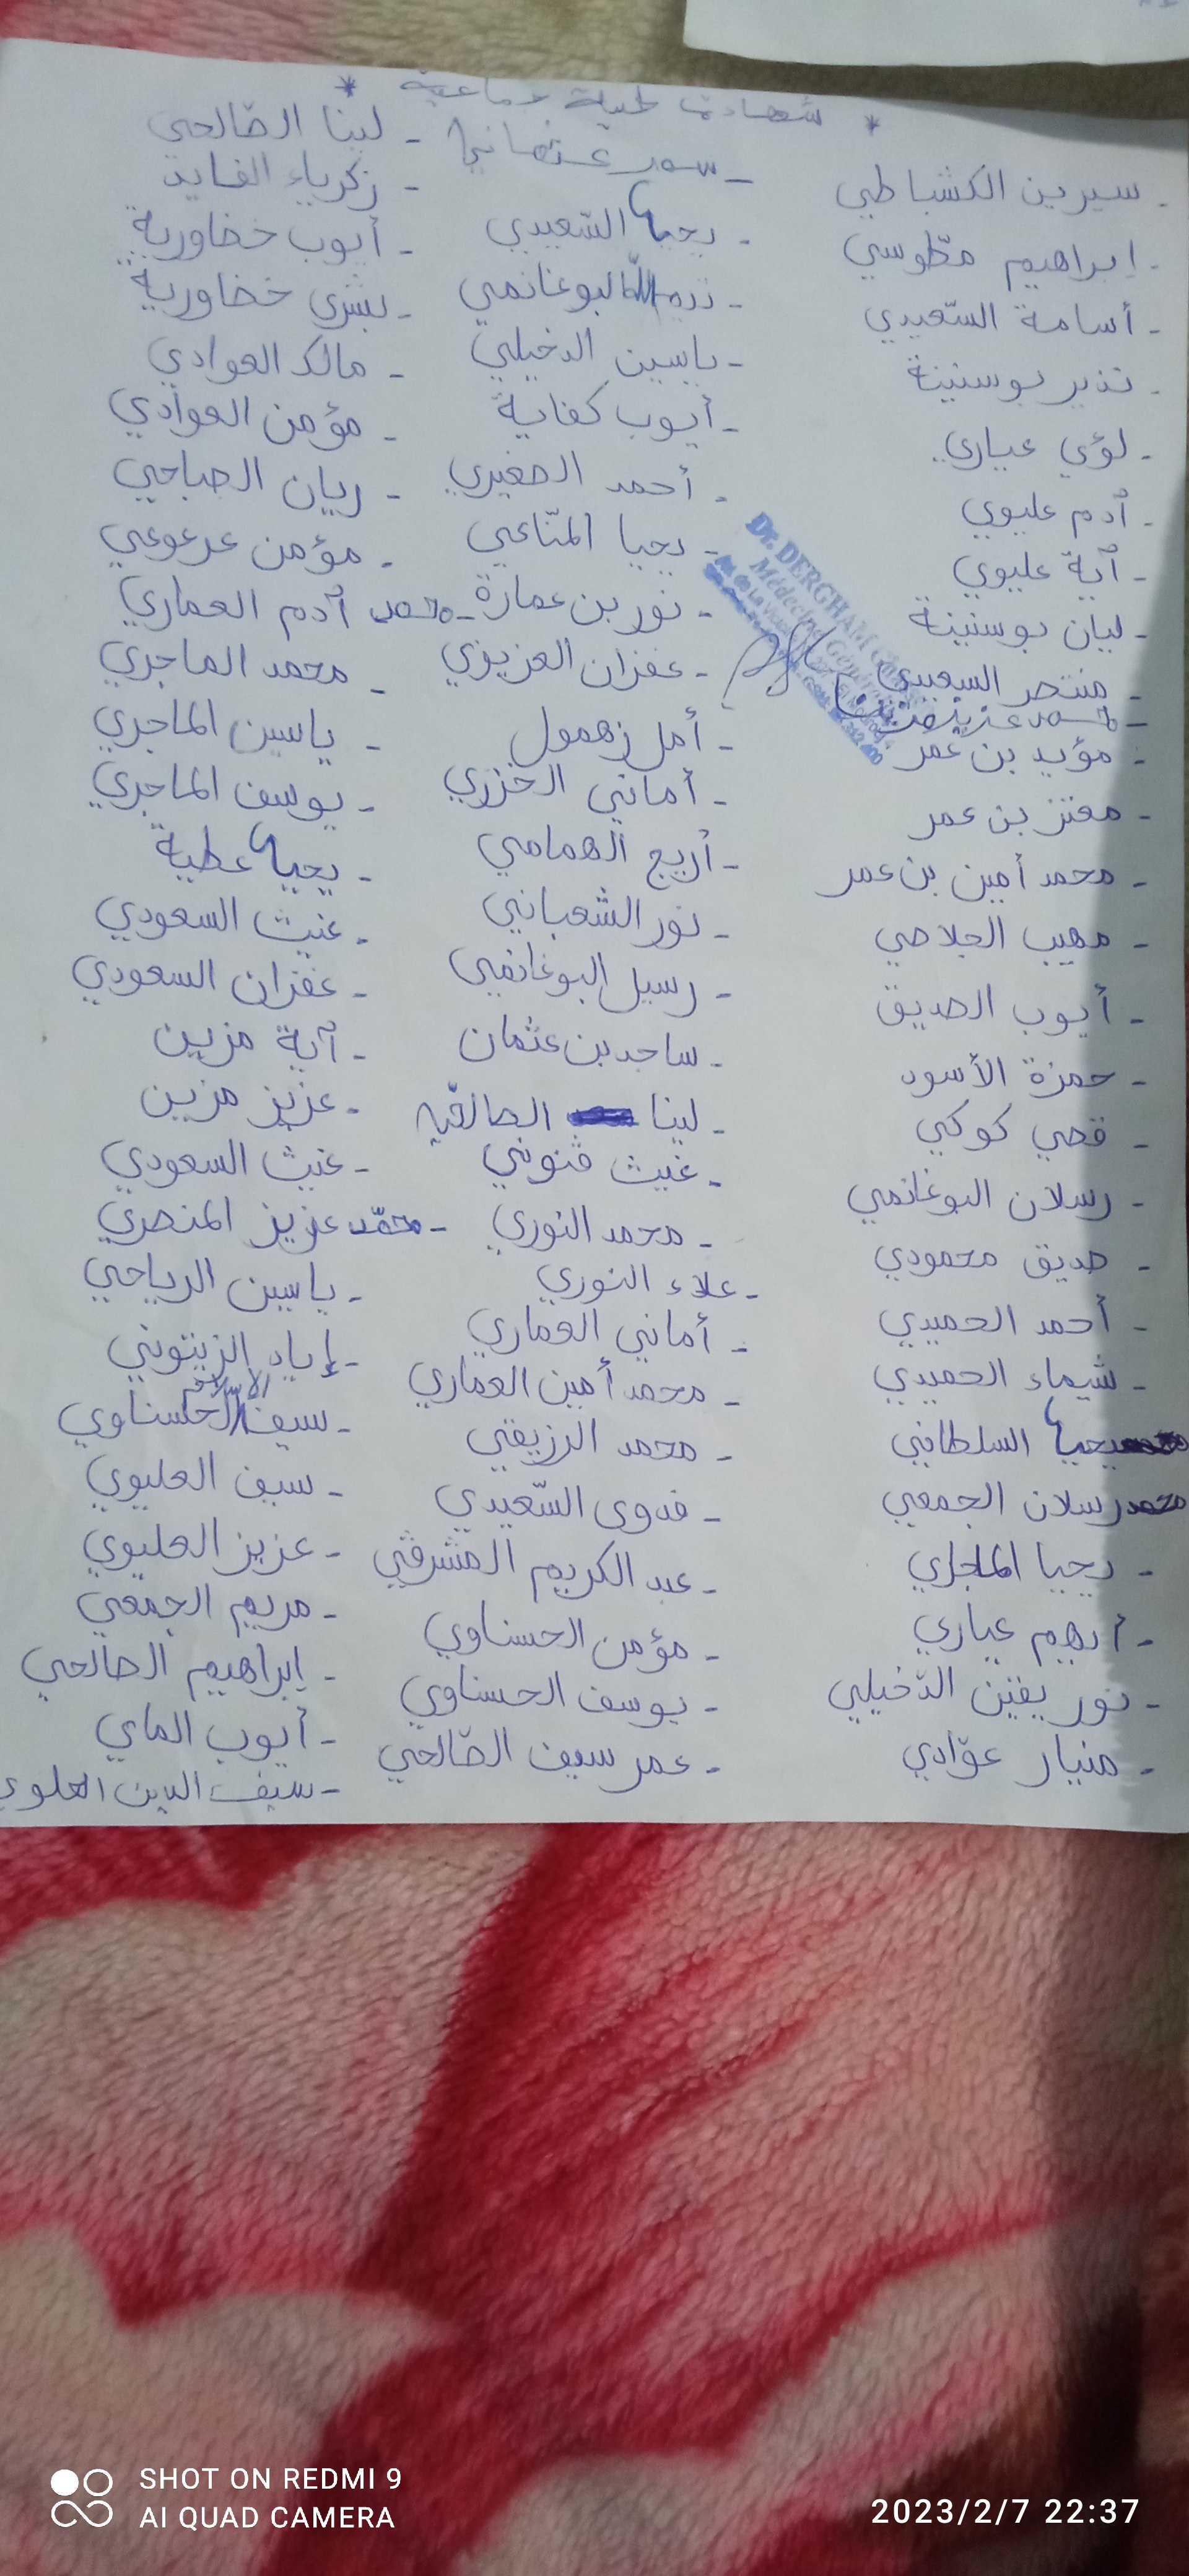 * شهادت طبية جماعية *
- سيرين الكشباطي
- ابراهيم مطوسي
- أسامة السّعيدي
- نذير بوسنينة
- لؤي عياري
- آدم عليوي
- آية عليوي
- ليان بوسنينة
- منتصر السعيدي
- محمد عزيز
- مؤيد بن عمر
- معتز بن عمر
- محمد أمين بن عمر
- مهيب الجلاصي
- أيوب الصديق
- حمزة الأسود
- قصي كوكي
- رسلان البوغانمي
- صديق محمودي
- أحمد الحميدي
- شيماء الحميدي
يحيا السلطاني
محمد رسلان الجمعي
- يحيا الماجري
- أدهم عياري
- نور يقين الدّخيلي
- منيار عوّادي
- سمر عثماني
- يحيا السّعيدي
- البوغانمي
- ياسين الدخيلي
- أيوب كفاية
- أحمد الصغيري
- يحيا المنّاعي
- نور بن عمارة
- غفران العزيزي
- أمل زهمول
- أماني الخزري
- أريج الهمامي
- نور الشعباني
- رسيل البوغانمي
- ساجد بن عثمان
- لينا
- غيث فنوني
- محمد النوري
- علاء النوري
- أماني العماري
- محمد أمين العماري
- محمد الرزيقي
- فدوى السّعيدي
- عبد الكريم المشرقي
- مؤمن الحسناوي
- يوسف الحسناوي
- عمر سيف الصّالحي
- لينا الصّالحي
- زكرياء الفايد
- أيوب خضاورية
- بشرى خضاورية
- مالك العوادي
- مؤمن العوادي
- ريان الصباحي
- مؤمن عرعوعي
- محمد آدم العماري
- محمد الماجري
- ياسين الماجري
- يوسف الماجري
- يحيا عطية
- غيث السعودي
- غفران السعودي
- آية مزيين
- عزيز مزيين
- غيث السعودي
- محمّد عزيز المنصري
- ياسين الرياحي
- إياد الزيتوني
- سيف الإسلام الحسناوي
- سيف العليوي
- عزيز العليوي
- مريم الجمعي
- إبراهيم الصالحي
- أيوب الماي
- سيف الدين العلوي
Dr. DERGHAM
Médecine Générale
SHOT ON REDMI 9
AI QUAD CAMERA
2023/2/7 22:37